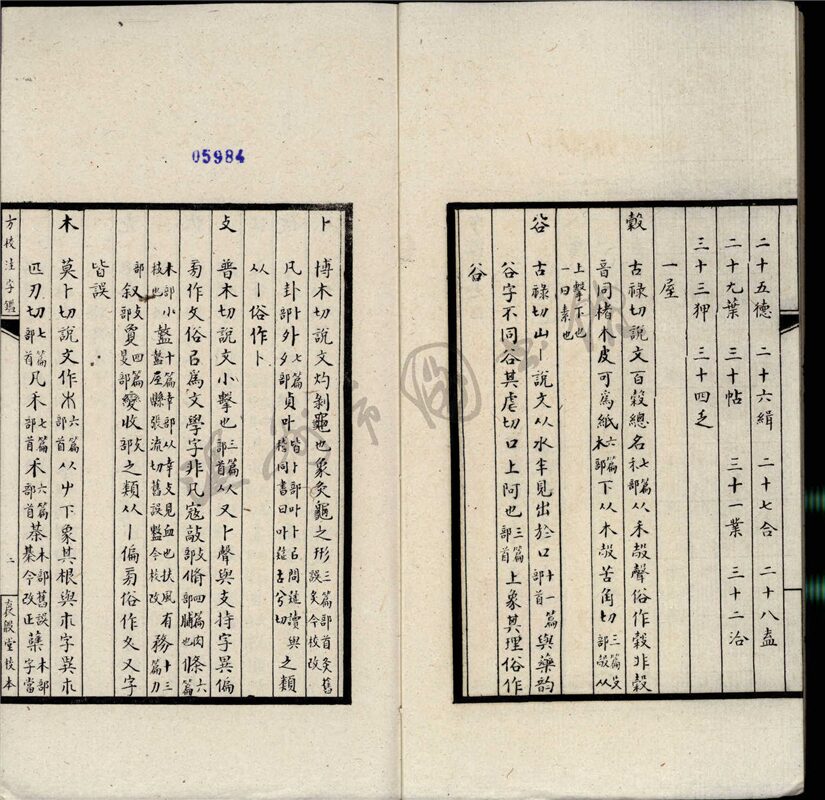 二十五德 二十六緝 二十七合 二十八盍
二十九葉 三十帖 三十一業 三十二洽
三十三狎 三十四乏
一屋
穀 古祿切說文百穀總名七篇禾部从禾㱿聲俗作榖非榖
音同楮木皮可為紙六篇木部下从木㱿苦角切三篇殳部㱿从
上擊下也一曰素也
谷 古祿切山丨說文从水半見出於口十一篇部首與藥韵
谷字不同谷其虐切口上阿也三篇部首上象其理俗作
谷
卜 博木切說文灼剝龜也象灸龜之形三篇部首灸舊誤炙今校改
凡卦卜部外七篇夕部貞卟皆卜部卟卜㠯問疑讀與稽同書曰卟疑古兮切之類
从丨俗作卜
攴 普木切說文小擊也三篇部首从又卜聲與支持字異偏
旁作攵俗㠯為文學字非凡寇敲攴部脩四篇肉部脯也條六篇
木部小枝也盩十篇㚔部从㚔攴見血也扶風有盩厔縣張流切舊誤盤今校改務十三篇力
部敍攴部夐四篇𥄎部變收攴部之類从丨偏旁俗作夂又字
皆誤
木 莫卜切說文作朩六篇部首从屮下象其根與朩字異朩
匹刃切七篇部首凡禾七篇部首禾六篇部首棊木部舊誤綦今改正𣐈木部字當
方校注字鑑
二
裛殷堂校本
05984